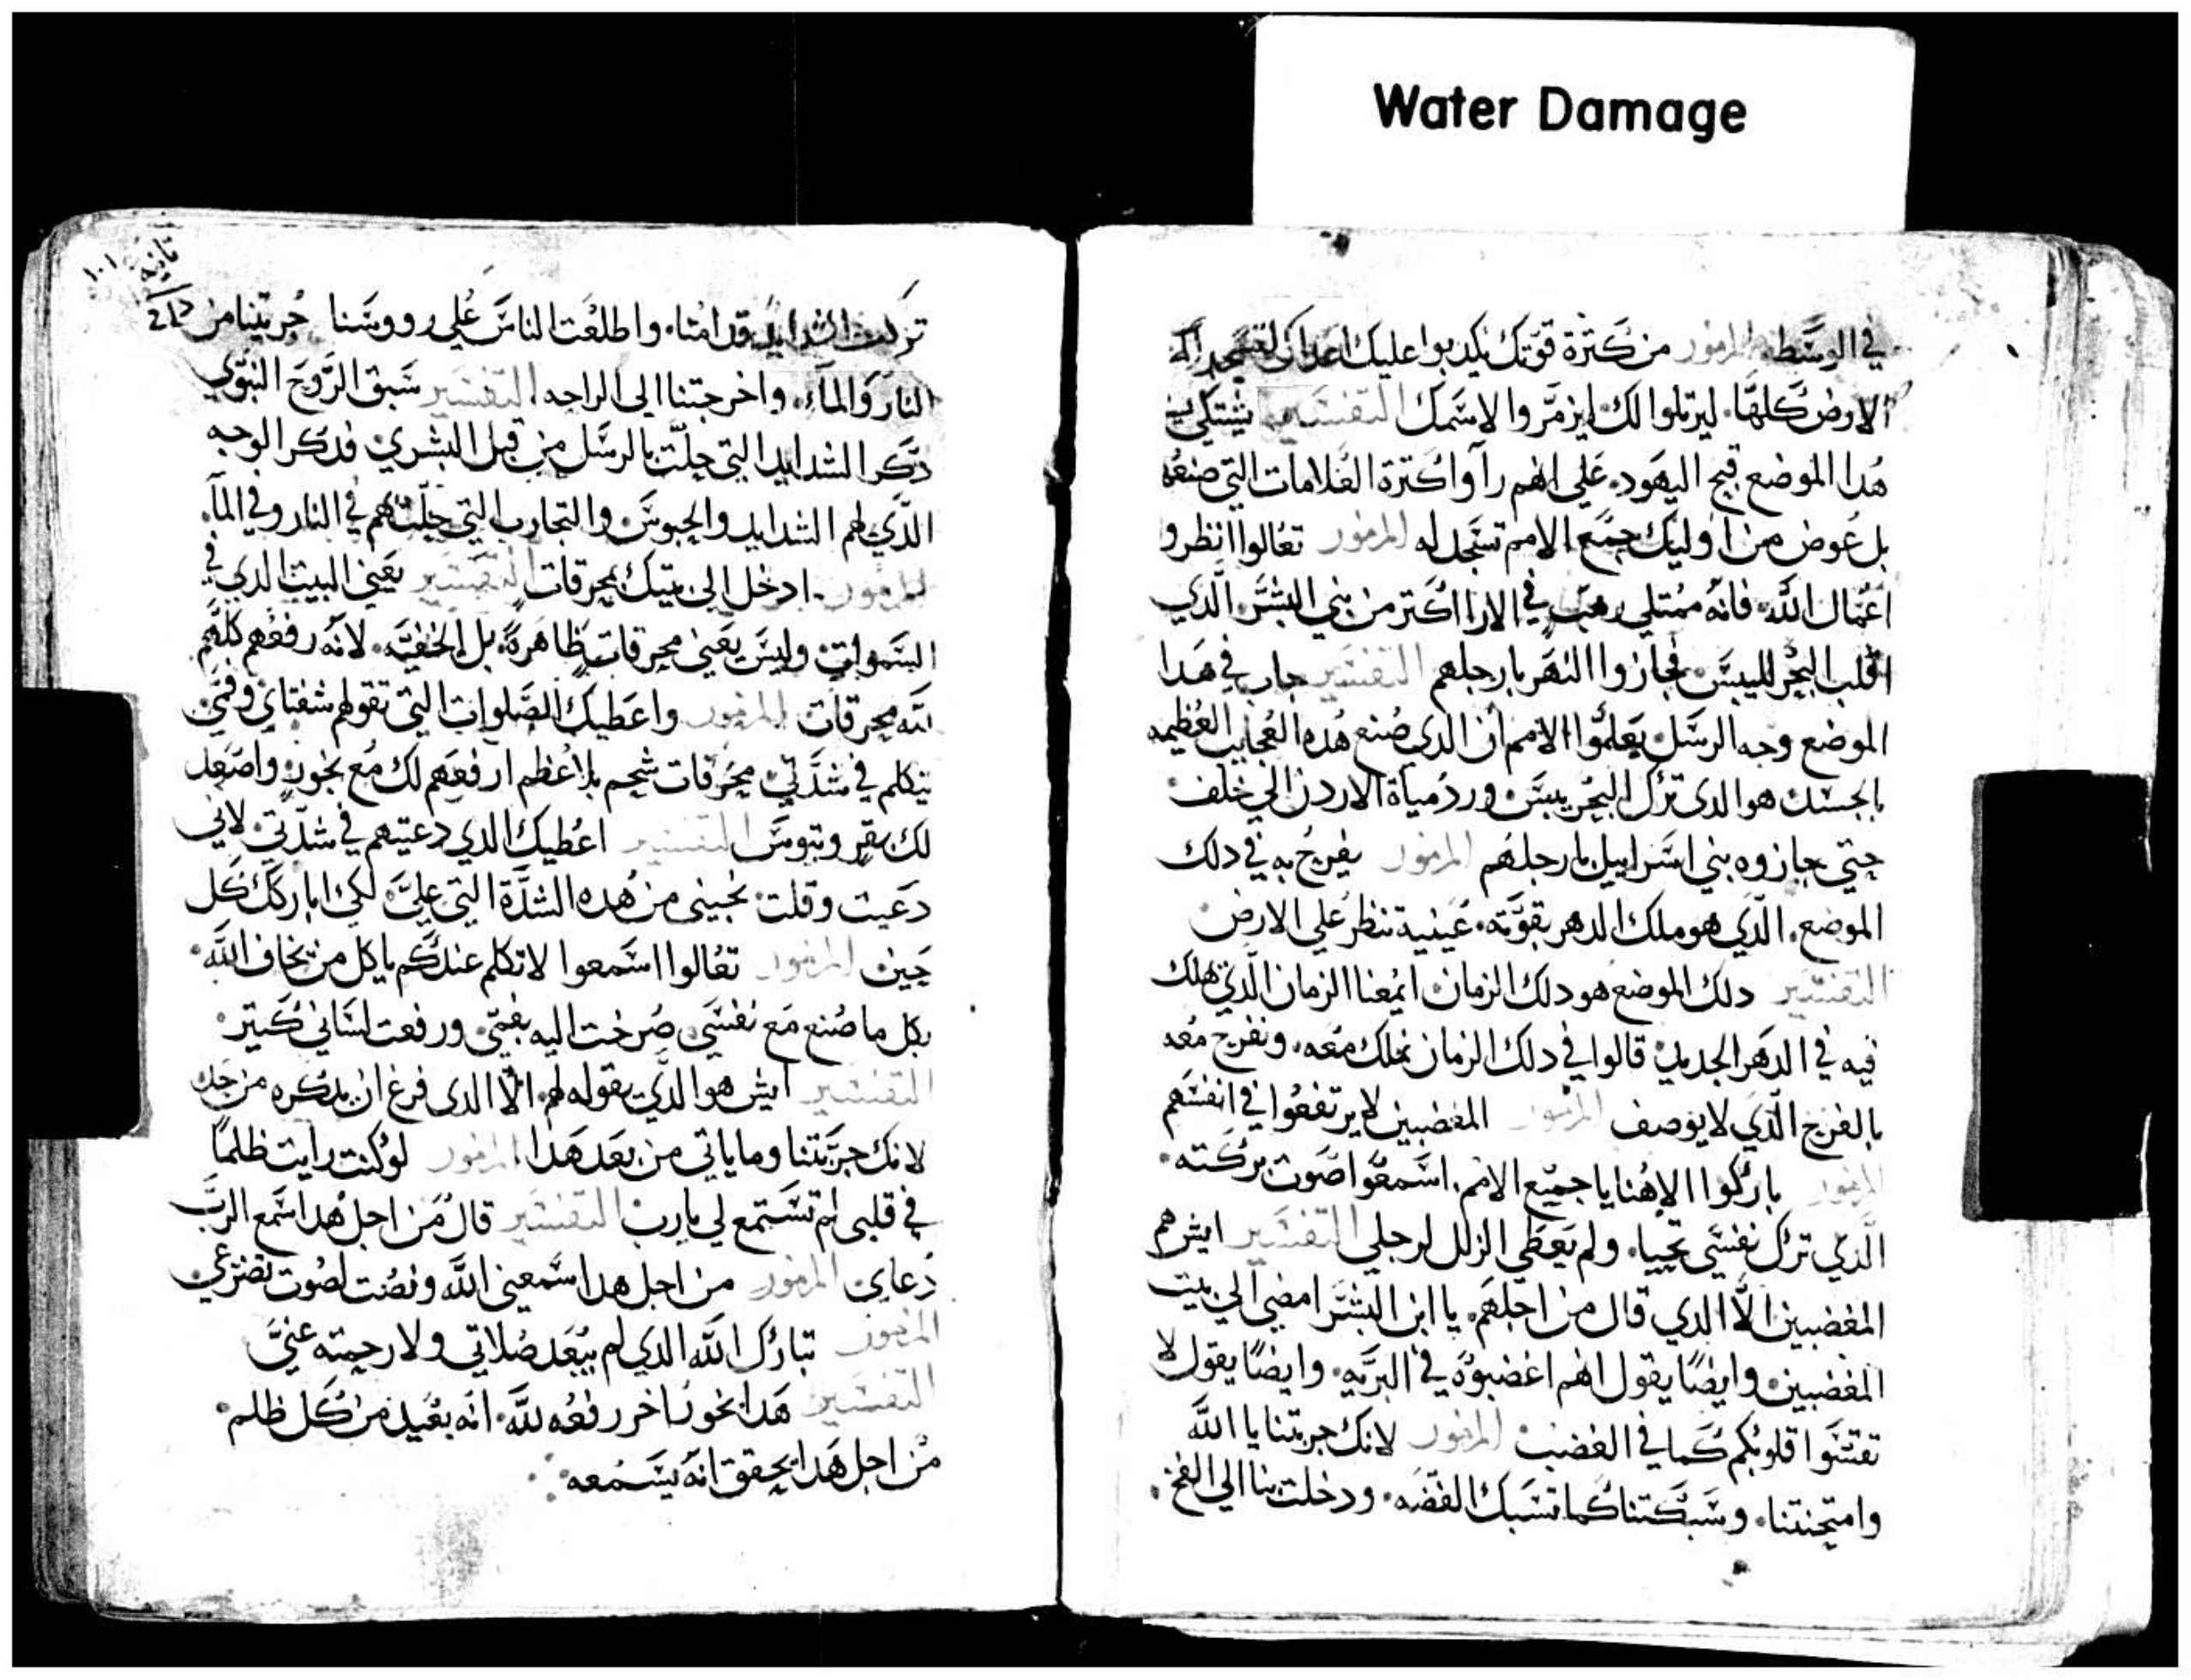 Water Damage
في الوسط المزمور من كترة قوتك يكدبوا عليك اعداك لتسجد لك
الارض كلها. ليرتلوا لك ليزمروا لاسمك التفسير يشتكي في
هدا الموضع قبح اليهود. علي انهم رآوا كترة العلامات التي صنعه
بل عوض من اوليك جمع الامم تسجد له المزمور تعالوا انظروا
اعمال الله. فانه ممتلي رهب في الارا اكتر من بني البشر الدي
اقلب البحر لليبس. فجازوا النهر بارجلهم التفسير جاب في هدا
الموضع وجه الرسل. يعلموا الامم ان الدي صنع هده العجايب العظيمه
بالجسد. هو الدى ترك البحر يبس. ورد مياة الاردن الي خلف.
حتي جازوه بني اسراييل بارجلهم المزمور يفرح به في دلك
الموضع. الدي هو ملك الدهر بقوته. عينيه تنظر علي الارض.
التفسير دلك الموضع هو دلك الزمان. ايمعنا الزمان الدي هلك
فيه في الدهر الجديد. قالوا في دلك الزمان نملك معه. ونفرح معه
بالفرح الدي لا يوصف المزمور المغضبين لا يرتفعوا في انفسهم
المزمور باركوا الاهنا يا جميع الامم. اسمعوا صوت بركته.
الدي ترك نفسي تحيا. ولم يعطي الزلل لرجلي التفسير ايش هم
المغضبين الا الدي قال من اجلهم. يا ابن البشر امضي الي بيت
المغضبين. وايضًا يقول انهم اغضبوه في البريه. وايضًا يقول لا
تقسوا قلوبكم كما في الغضب المزمور لانك جربتنا يا الله
وامتحنتنا. وسبكتنا كما تسبك الفضه. ودخلت بنا الي الفخ.
١٠١
تركت الشدايد قدامنا. واطلعت الناس علي رووسنا جربتنا من
النار والماء. واخرجتنا الى الراحه التفسير سبق الروح النبوي
دكر الشدايد التي حلت بالرسل من قبل البشري فدكر الوجه
الدي لهم الشدايد والحبوس. والتجارب التي حلت لهم في النار وفي الماء.
المزمور. ادخل الى بيتك بمحرقات التفسير يعني البيت الدي في
السموات. وليس يعني محرقات ظاهرة. بل الخفيه. لانه رفعهم كلهم
لله محرقات المزمور واعطيك الصلوات التي تقولهم شفتاي وفمي
يتكلم في شدتي. محرقات شحم بلا عظم ارفعهم لك مع بخور. واصعد
لك بقر وتيوس التفسير اعطيك الدي دعيتهم في شدتي. لاني
دعيت وقلت. نجيني من هده الشدة التي علي. لكي اباركك كل
حين المزمور تعالوا اسمعوا لاتكلم عندكم يا كل من يخاف الله.
بكل ما صنع مع نفسي. صرخت اليه بفمي. ورفعت لساني كتير.
التفسير ايش هو الدي يقوله لهم. الا الدى فرغ ان يدكره من جهة
لانك جربتنا وما ياتي من بعد هدا المزمور لو كنت رايت ظلمًا
في قلبي لم تستمع لي يارب التفسير قال من اجل هدا اسمع الرب
دعاي المزمور من اجل هدا سمعني الله ونصت لصوت تضرعي
المزمور تبارك الله الدي لم يبعد صلاتي ولا رحمته عني
التفسير هدا بخور اخر رفعه لله. انه بعيد من كل ظلم.
من اجل هدا يحقق انه يسمعه